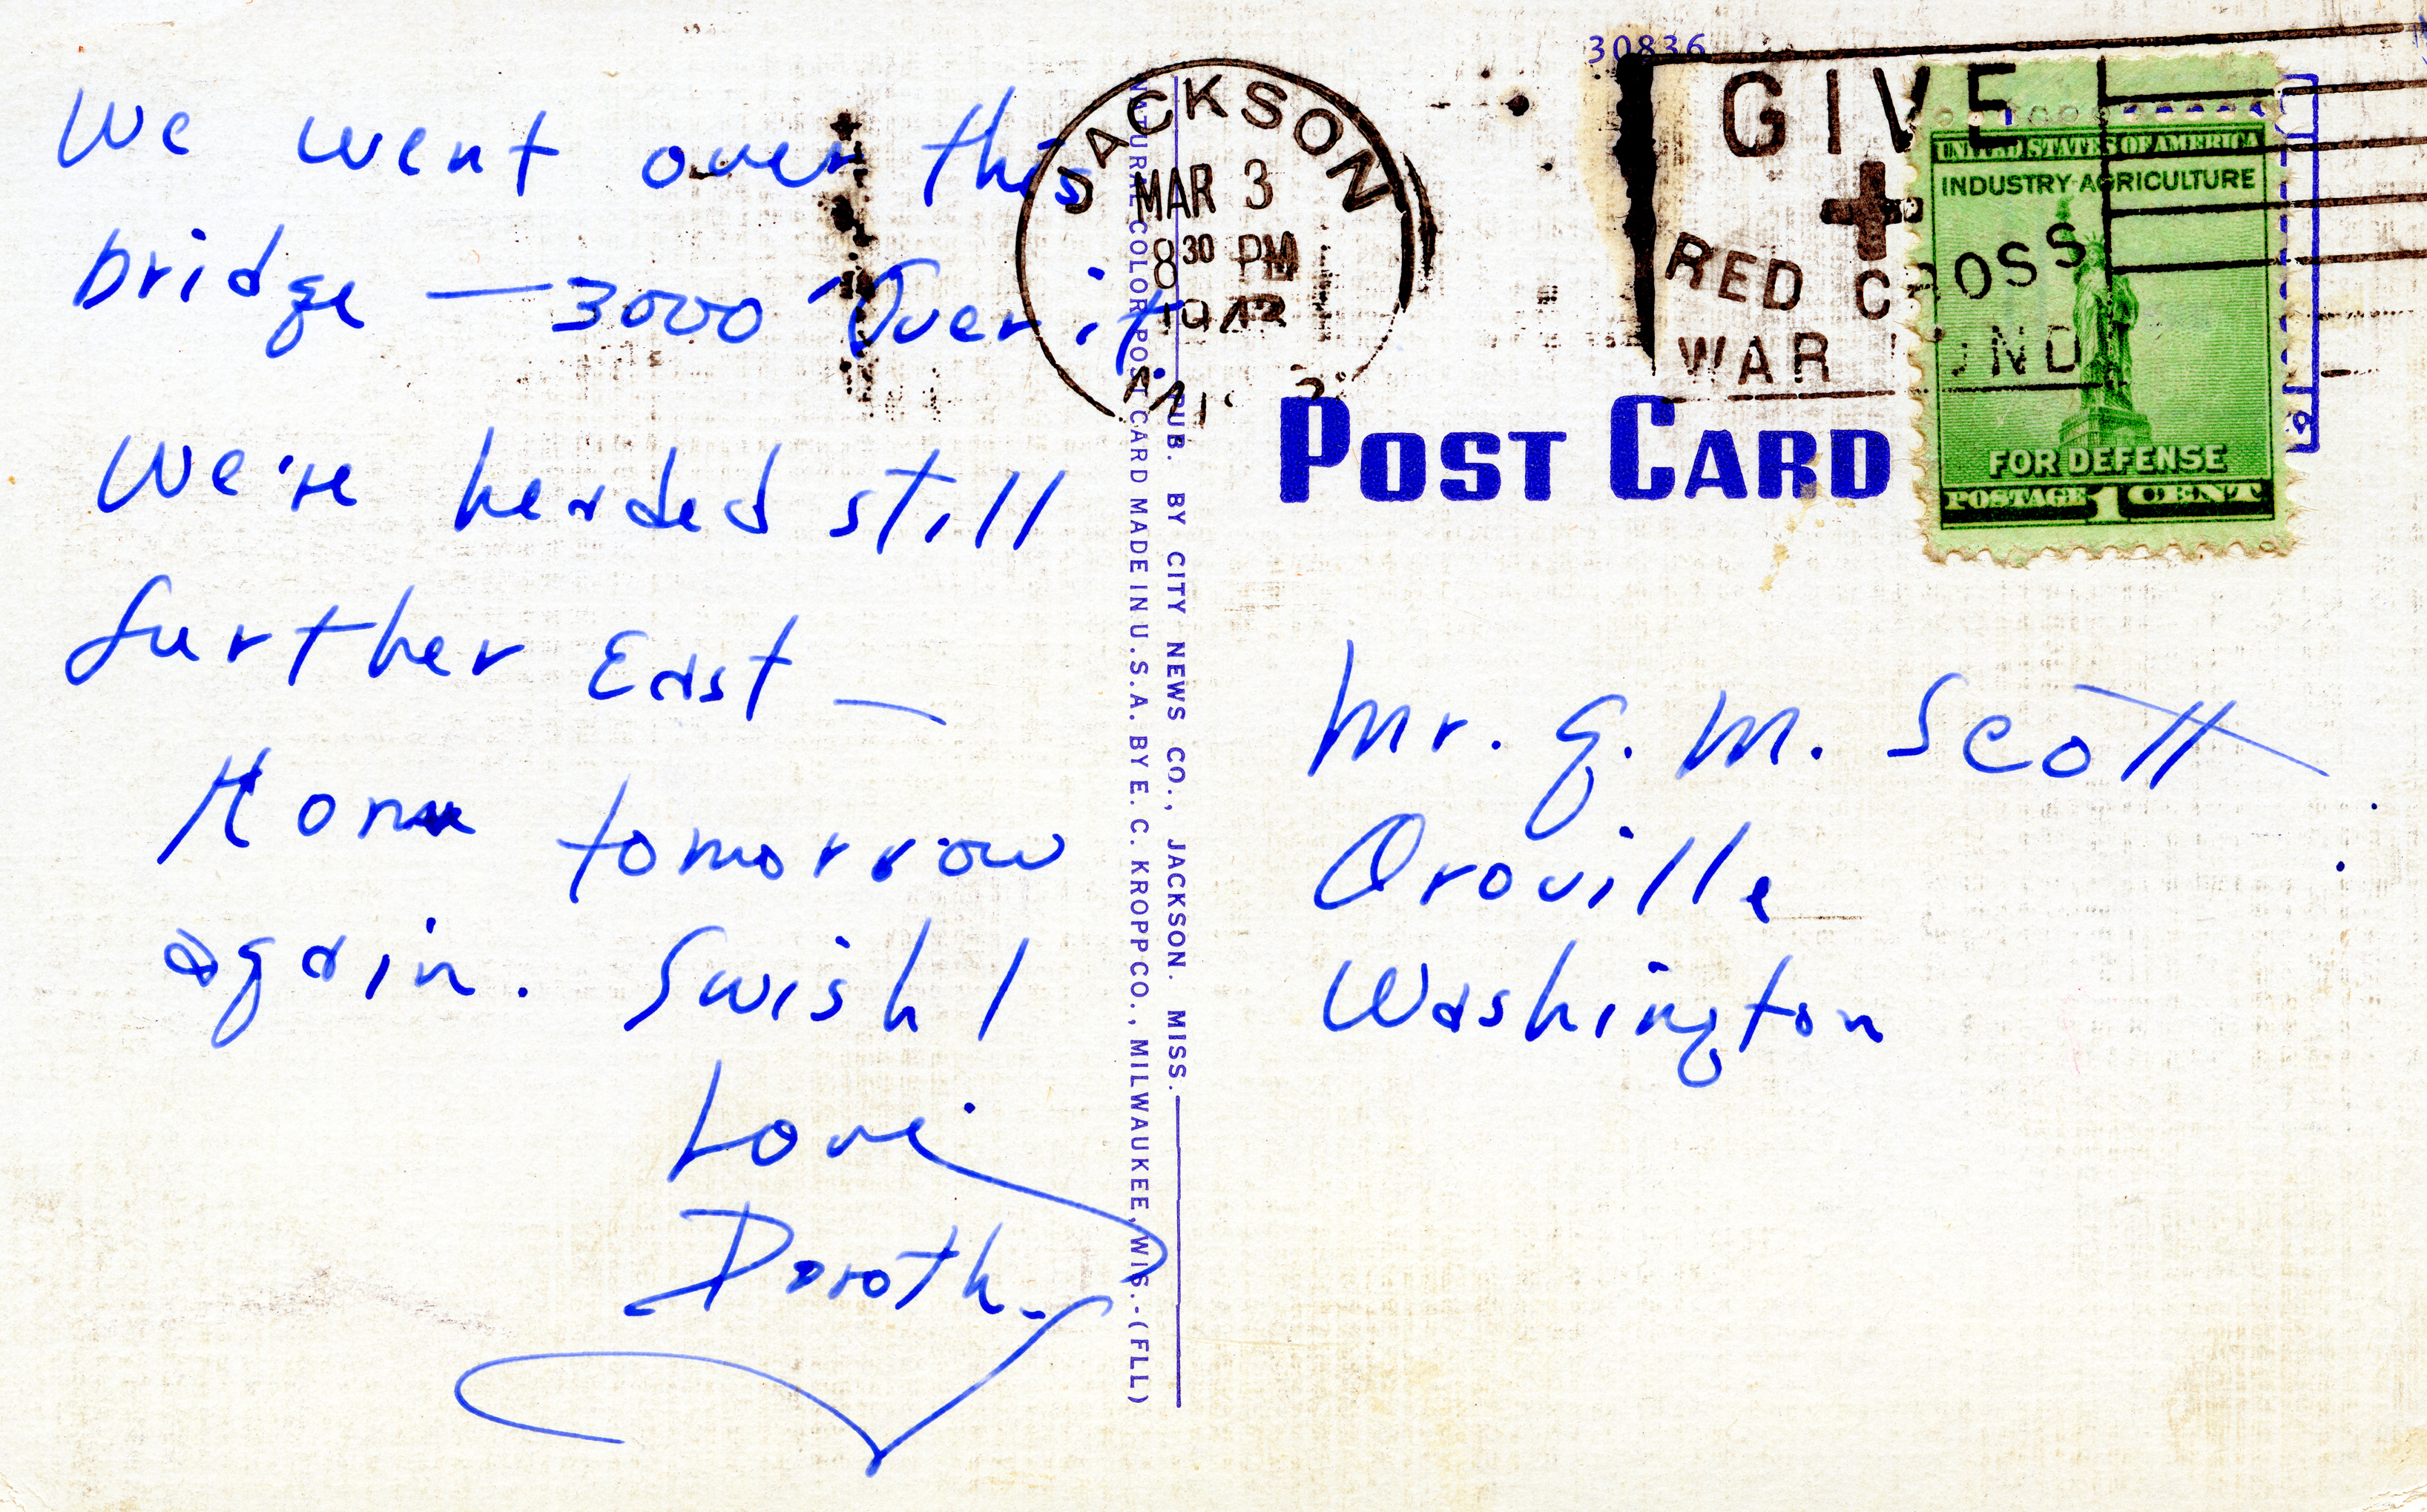 We went over this
bridge — 3000 Over it.
We're headed still
further East —
Home tomorrow
again. Swish!
Love
Dorothy
NATURAL COLOR POST CARD MADE IN U.S.A. BY E. C. KROPP CO., MILWAUKEE, WIS.-(FLL)
PUB. BY CITY NEWS CO., JACKSON. MISS.
JACKSON
MAR 3
8 30 PM
194
30836
GIVE
RED CROSS
WAR FUND
UNITED STATES OF AMERICA
INDUSTRY-AGRICULTURE
FOR DEFENSE
POSTAGE 1 CENT
POST CARD
Mr. G. M. Scott
Oroville
Washington